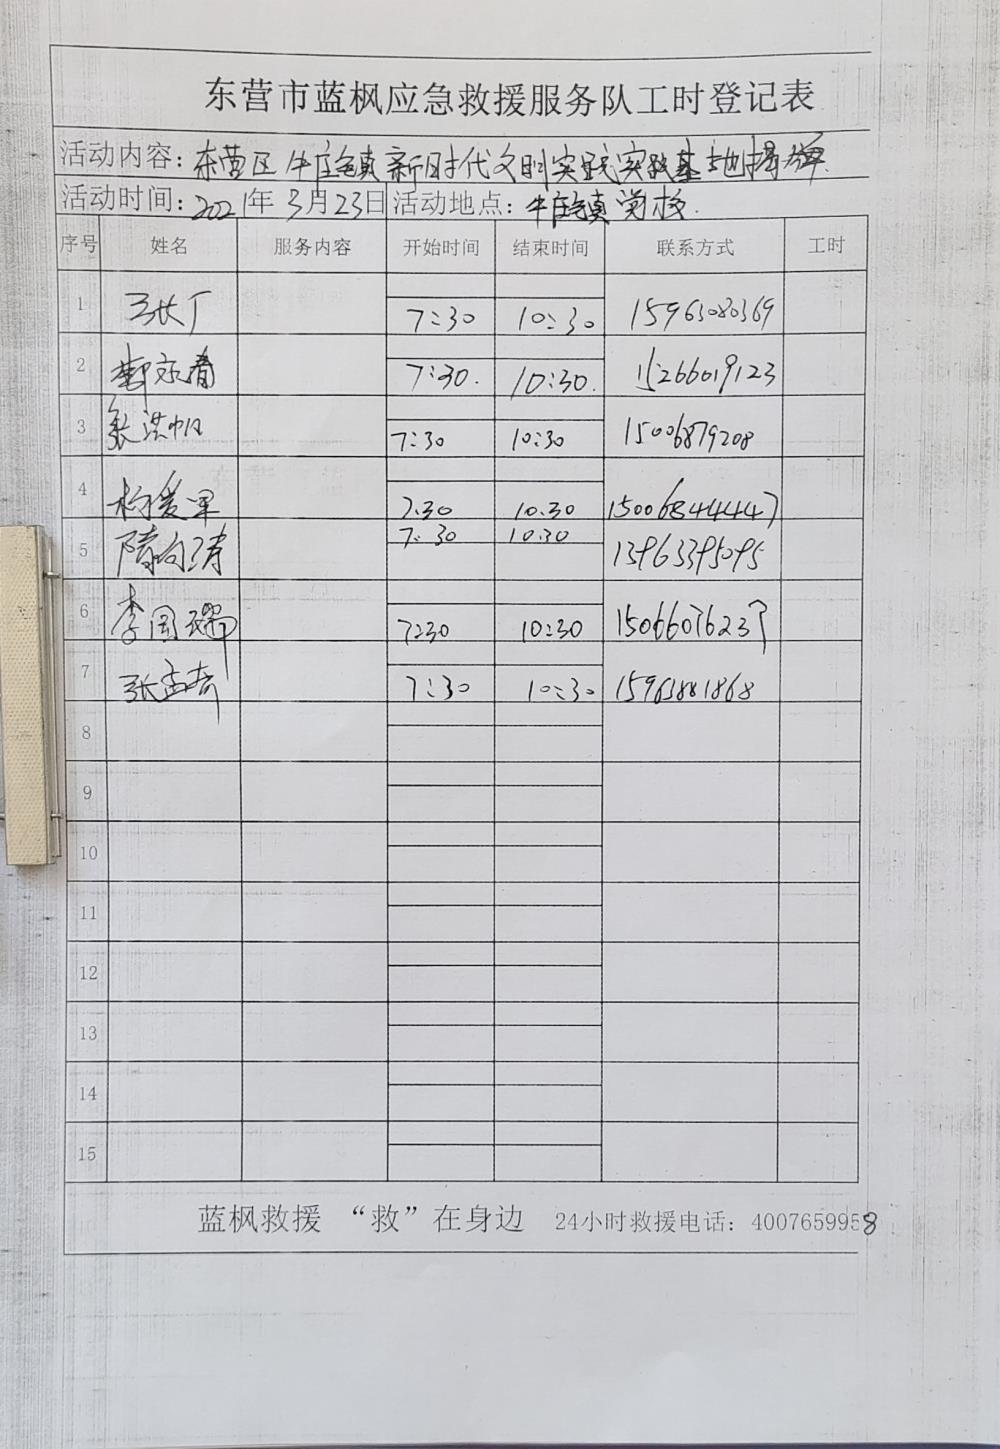 东营市蓝枫应急救援服务队工时登记表
活动内容：东营区牛庄镇新时代文明实践实践基地揭牌.
活动时间：2021年3月23日 活动地点：牛庄镇学校.
序号 姓名 服务内容 开始时间 结束时间 联系方式 工时
1 7:30 10:30 15963080369
2 7:30. 10:30. 15266019123
3 张洪帅 7:30 10:30 15006879208
4 杨爱军 7.30 10.30 15006844447
5 隋向涛 7:30 10:30 13963395095
6 李国瑞 7:30 10:30 15066076237
7 张孟奇 7:30 10:30 15963881868
8
9
10
11
12
13
14
15
蓝枫救援 “救”在身边 24小时救援电话：4007659958